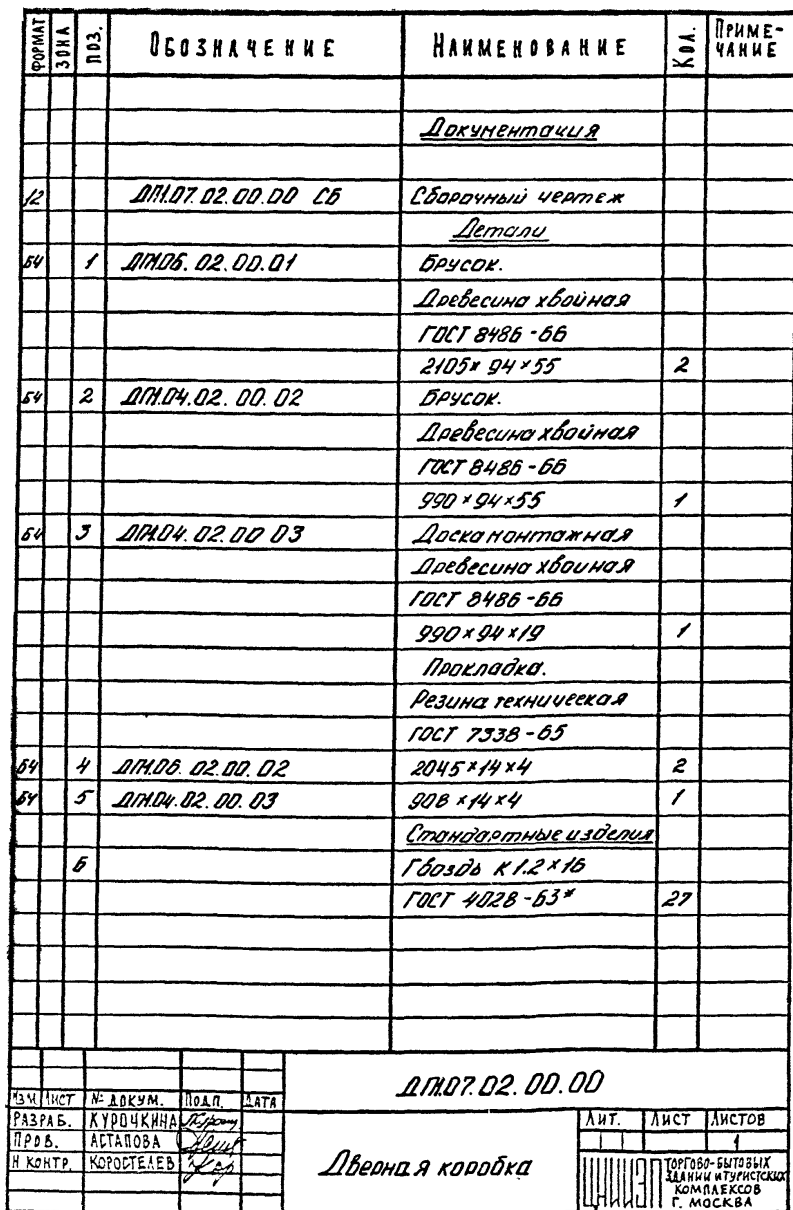 ФОРМАТ ЗОНА ПОЗ. ОБОЗНАЧЕНИЕ НАИМЕНОВАНИЕ КОЛ. ПРИМЕ-
ЧАНИЕ
Документация
12 ДГМ.07.02.00.00 СБ Сборочный чертеж
Детали
БЧ 1 ДГМ.06.02.00.01 Брусок.
Древесина хвойная
ГОСТ 8486-66
2105×94×55 2
БЧ 2 ДГМ.04.02.00.02 Брусок.
Древесина хвойная
ГОСТ 8486-66
990×94×55 1
БЧ 3 ДГМ.04.02.00 03 Доска монтажная
Древесина хвойная
ГОСТ 8486-66
990×94×19 1
Прокладка.
Резина техническая
ГОСТ 7338-65
БЧ 4 ДГМ.06.02.00.02 2045×14×4 2
БЧ 5 ДГМ.04.02.00.03 908×14×4 1
Стандартные изделия
6 Гвоздь К1.2×16
ГОСТ 4028-63* 27
ДГМ.07.02.00.00
ИЗМ ЛИСТ № ДОКУМ. ПОДП. ДАТА
РАЗРАБ. КУРОЧКИНА
ПРОВ. АСТАПОВА
Н КОНТР. КОРОСТЕЛЕВ
Дверная коробка
ЛИТ. ЛИСТ ЛИСТОВ
1
ЦНИИЭП ТОРГОВО-БЫТОВЫХ
ЗДАНИИ И ТУРИСТСКИХ
КОМПЛЕКСОВ
Г. МОСКВА